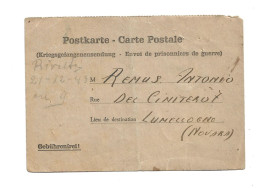 Postkarte - Carte Postale
(Kriegsgefangenensendung - Envoi de prisonnier de guerre)
M REMUS ANTONIO
Rue DEL CIMITERO 7
Lieu de destination LUMELLOGNO
(NOVARA)
Gebührenfrei!